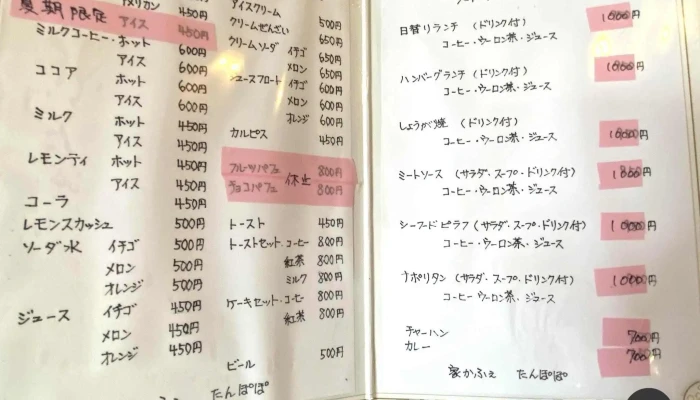 アメリカン 450円
夏期限定 アイス 450円
ミルクコーヒー・ホット 600円
アイス 600円
ココア ホット 600円
アイス 600円
ミルク ホット 450円
アイス 450円
レモンティ ホット 450円
アイス 450円
コーラ 450円
レモンスカッシュ 500円
ソーダ水 イチゴ 500円
メロン 500円
オレンジ 500円
ジュース イチゴ 450円
メロン 450円
オレンジ 450円
たんぽぽ
アイスクリーム
クリームぜんざい 500円
クリームソーダ イチゴ 650円
メロン 650円
ジュースフロート イチゴ 600円
メロン 600円
オレンジ 600円
カルピス 450円
フルーツパフェ 800円
休止
チョコパフェ 800円
トースト 450円
トーストセット・コーヒー 800円
紅茶 800円
ミルク 800円
ケーキセット・コーヒー 800円
紅茶 800円
ビール 500円
日替りランチ (ドリンク付) 円
コーヒー・ウーロン茶・ジュース
ハンバーグランチ (ドリンク付) 円
コーヒー・ウーロン茶・ジュース
しょうが焼 (ドリンク付) 円
コーヒー・ウーロン茶・ジュース
ミートソース (サラダ・スープ・ドリンク付) 円
コーヒー・ウーロン茶・ジュース
シーフドピラフ (サラダ・スープ・ドリンク付) 円
コーヒー・ウーロン茶・ジュース
ナポリタン (サラダ・スープ・ドリンク付) 円
コーヒー・ウーロン茶・ジュース
チャーハン 700円
カレー 700円
家かふぇ たんぽぽ